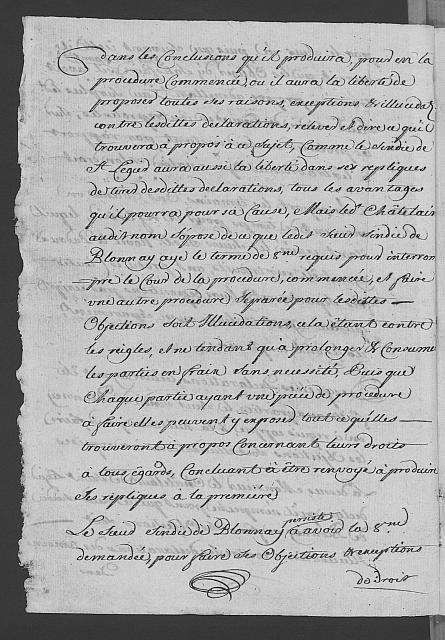 dans les Conclusions qu'il produira, pour en la
procedure Commencé, ou il aura la liberté de
proposer toutes ses raisons, exceptions & illucidat.
contre lesdittes declarations, relever et dire ce qu'il
trouvera à propos à ce Sujet, Comme le Sindic de
St Leger aura aussi la liberté dans ses repliques
de tirer desdittes declarations, tous les avantages
qu'il pourra pour sa Cause, Mais led. Châtelain
audit nom S'opose de ce que ledit Sieur Sindic de
Blonnay aye le terme de 8.ne requis pour interrom
pre le Cour de la procedure, commencée, et faire
une autre procedure Separée pour lesdittes
Objections Soit Illucidations, cela étant contre
les règles, et ne tendant qu'à prolonger & Consumer
les parties en frais Sans necessité, Puis que
Chaque partie ayant une pièce de procedure
à faire elles peuvent y exposer tout ce qu'elles
trouveront à propos Concernant leurs droits
à tous égards, Concluant à être renvoyé à produire
Ses repliques à la première
Le Sieur Sindic de Blonnay persiste à avoir la 8.ne
demandée, pour faire Ses Objections & exceptions
de Droit